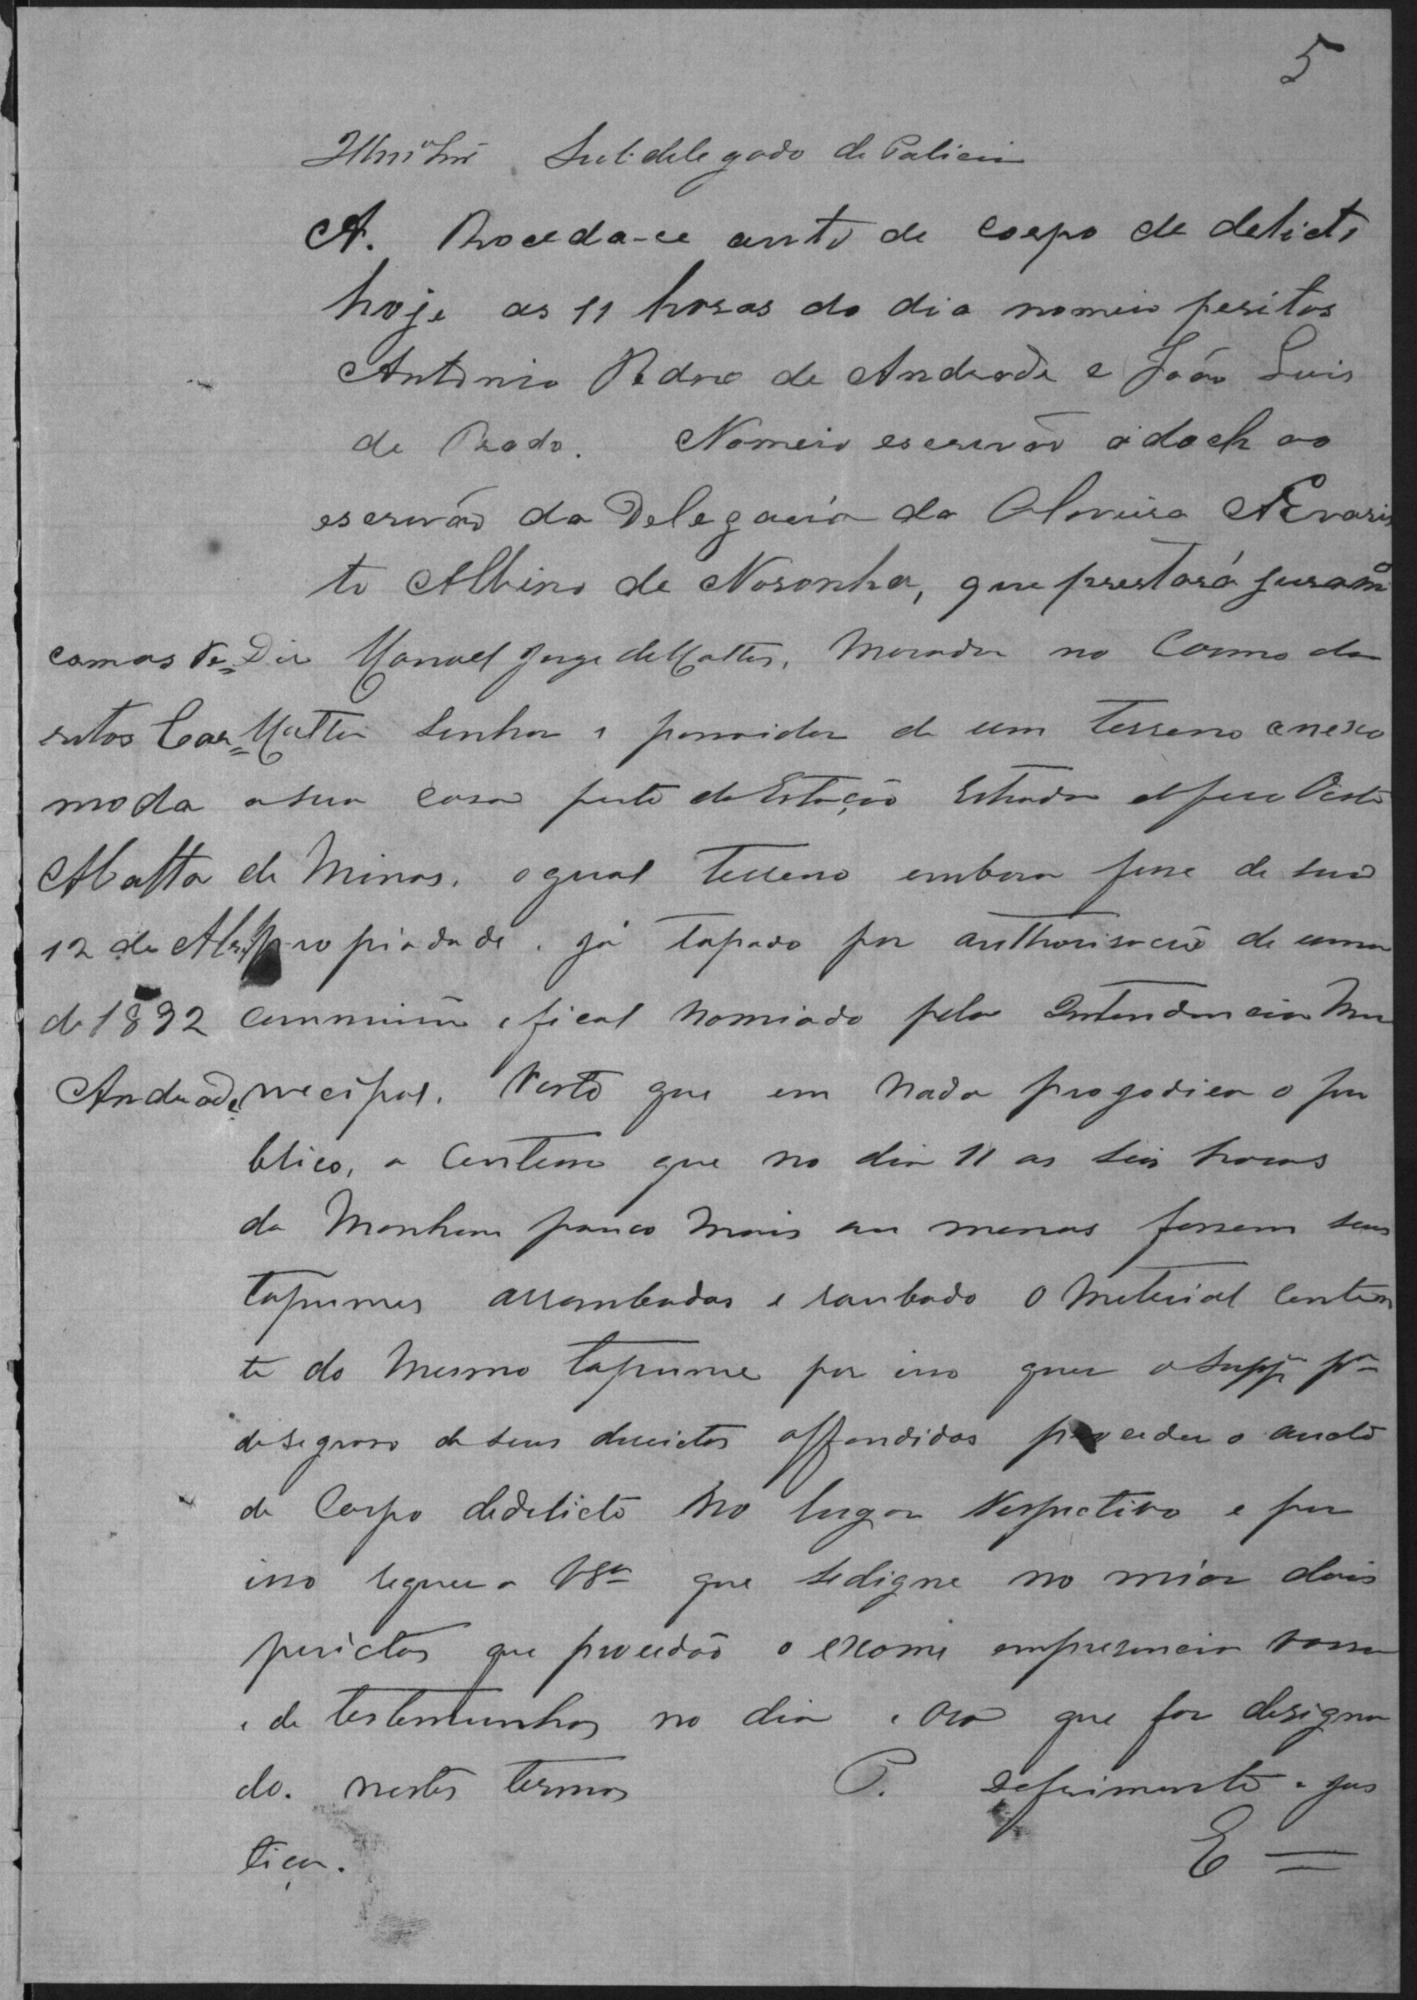 5
Illmo Snr Subdelegado de Policia
A. Proceda-ce auto de corpo de delicto
hoje as 11 horas do dia nomeio peritos
Antonio Pedro de Andrade e João Luis
de Prado. Nomeio escrivão adoch ao
escrivão da Delegacia da Oliveira Evaris
to Albino de Noronha, que prestará juramto
com os pe=
ritos Car=
mo da
Matta
12 de Abril
de 1892
Andrade
Diz Manoel Jorge de Mattos, morador no Carmo da
Matta Senhor e possuidor de um terreno anexo
a sua casa perto da Estação Estrada de ferro Oeste
de Minas, o qual terreno embora fosse de sua
propiadade, já tapado por authorisacão de uma
commissão e fical nomiado pela Intendencia Mu
necipal. Visto que em nada progodica o pu
blico, a contece que no dia 11 as seis horas
da Manham pouco mais au menos forrem seus
tapumes arrombados e roubado o material conten
te do mesmo tapume por isso quer o suppe pa
desegravo de seus direictos offendidos proceder o aucto
de Corpo dedelicto no lugar respectivo e por
isso requer a VSa que sedigne no miár dois
perictos que procedão o exame empresencia vossa
e de testemunhas no dia e ora que for designa
do. nestes termos P. deferimento e jus
tiça. E